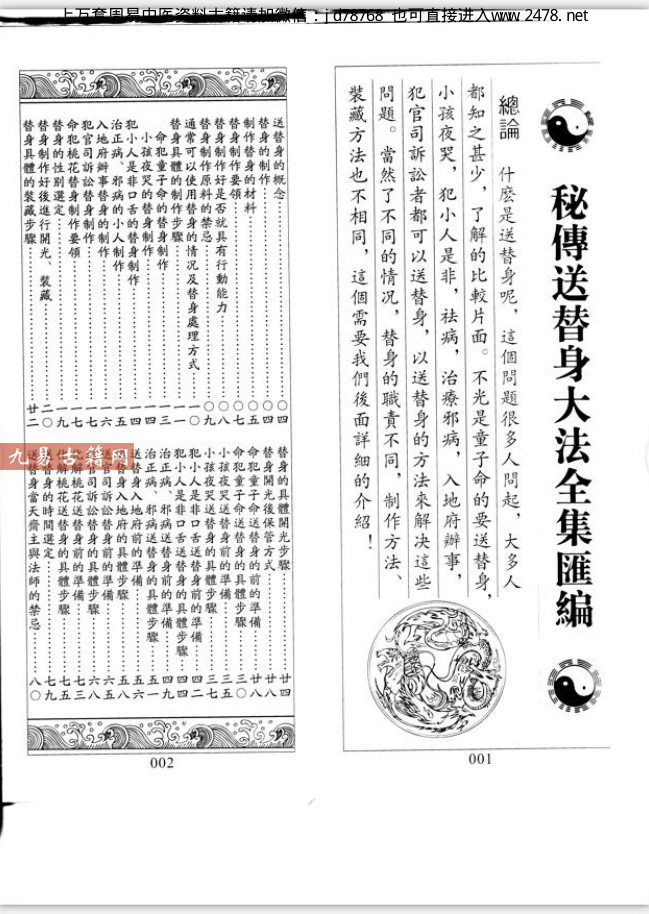 上万套周易中医资料古籍请加微信：jd78768 也可直接进入www 2478. net
秘傳送替身大法全集匯編
總論 什麽是送替身呢，這個問題很多人問起，大多人
都知之甚少，了解的比較片面。不光是童子命的要送替身，
小孩夜哭，犯小人是非，祛病，治療邪病，入地府辦事，
犯官司訴訟者都可以送替身，以送替身的方法來解决這些
問題。當然了不同的情况，替身的職責不同，制作方法、
裝藏方法也不相同，這個需要我們後面詳細的介紹！
001
送替身的概念……〇四
替身的制作……〇四
制作替身的材料……〇七
替身制作要領……〇七
替身制作好是否就具有行動能力……〇八
替身制作原料的禁忌……〇九
通常可以使用替身的情况及替身處理方式……一〇
替身具體的制作步驟……一一
命犯童子命的替身制作……一三
小孩夜哭的替身制作……一四
犯小人是非口舌的替身制作……一五
治正病、邪病的小人制作……一五
入地府辦事替身的制作……一六
犯官司訴訟替身制作……一七
命犯桃花替身制作要領……一九
替身的性别選定……一九
替身制作好後進行開光、裝藏……二〇
替身具體的裝藏步驟……廿二
替身的具體開光步驟……廿四
替身開光後保管方式……廿八
命犯童子命送替身的前的準備……廿八
命犯童子命送替身的具體步驟……三〇
小孩夜哭送替身前的準備……三五
小孩夜哭送替身的具體步驟……三七
犯小人是非口舌送替身前的準備……四二
犯小人是非口舌送替身的具體步驟……四四
治正病、邪病送替身前的準備……四九
治正病、邪病送替身的具體步驟……五一
送替身入地府前的準備……五六
送替身入地府的具體步驟……五八
送官司訴訟替身前的準備……六五
犯官司訴訟替身的具體步驟……六八
化解桃花送替身前的準備……七三
化解桃花送替身的具體步驟……七五
送替身的時間選定……七九
送替身當天齋主與法師的禁忌……八〇
002
九易古籍网